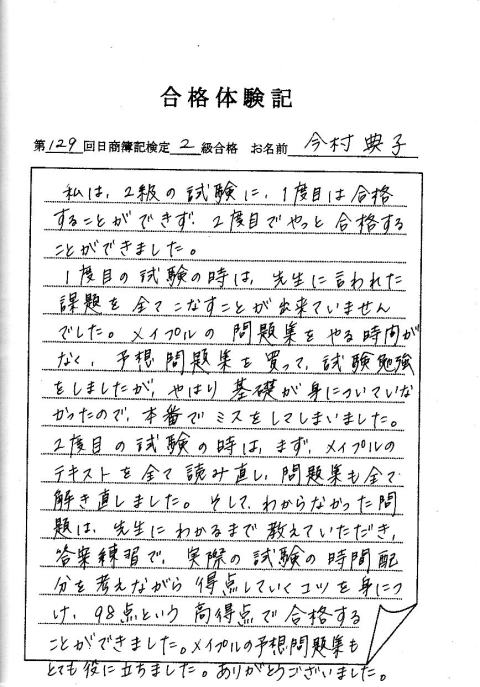 合格体験記
第129回日商簿記検定2級合格 お名前 今村典子
私は、2級の試験に、1度目は合格
することができず、2度目でやっと合格する
ことができました。
1度目の試験の時は、先生に言われた
課題を全てこなすことが出来ていません
でした。メイプルの問題集をやる時間が
なく、予想問題集を買って、試験勉強
をしましたが、やはり基礎が身についていな
かったので、本番でミスをしてしまいました。
2度目の試験の時は、まず、メイプルの
テキストを全て読み直し、問題集も全て
解き直しました。そして、わからなかった問
題は、先生にわかるまで教えていただき、
答案練習で、実際の試験の時間配
分を考えながら得点していくコツを身につ
け、98点という高得点で合格する
ことができました。メイプルの予想問題集も
とても役に立ちました。ありがとうございました。